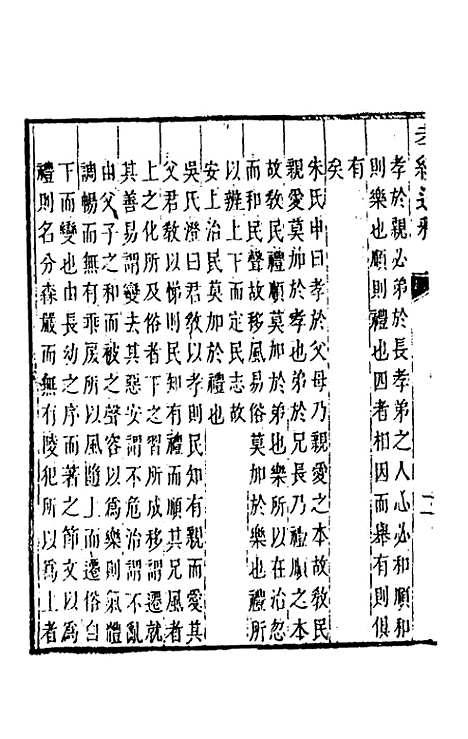 孝經通釋
孝於親必弟於長孝弟之人心必和順和
則樂也順則禮也四者相因而舉有則俱
有
矣
朱氏申曰孝於父母乃親愛之本故敎民
親愛莫加於孝也弟於兄長乃禮順之本
故敎民禮順莫加於弟也樂所以在治忽
而和民聲故移風易俗莫加於樂也禮所
以辨上下而定民志故
安上治民莫加於禮也
吳氏澄曰君敎以孝則民知有親而愛其
父君敎以悌則民知有禮而順其兄風者
上之化所及俗者下之習所成移謂遷就
其善易謂變去其惡安謂不危治謂不亂
由父子之和而被之聲容以爲樂則氣體
調暢而無有乖戾所以風隨上而遷俗自
下而變也由長幼之序而著之節文以爲
禮則名分森嚴而無有陵犯所以爲上者